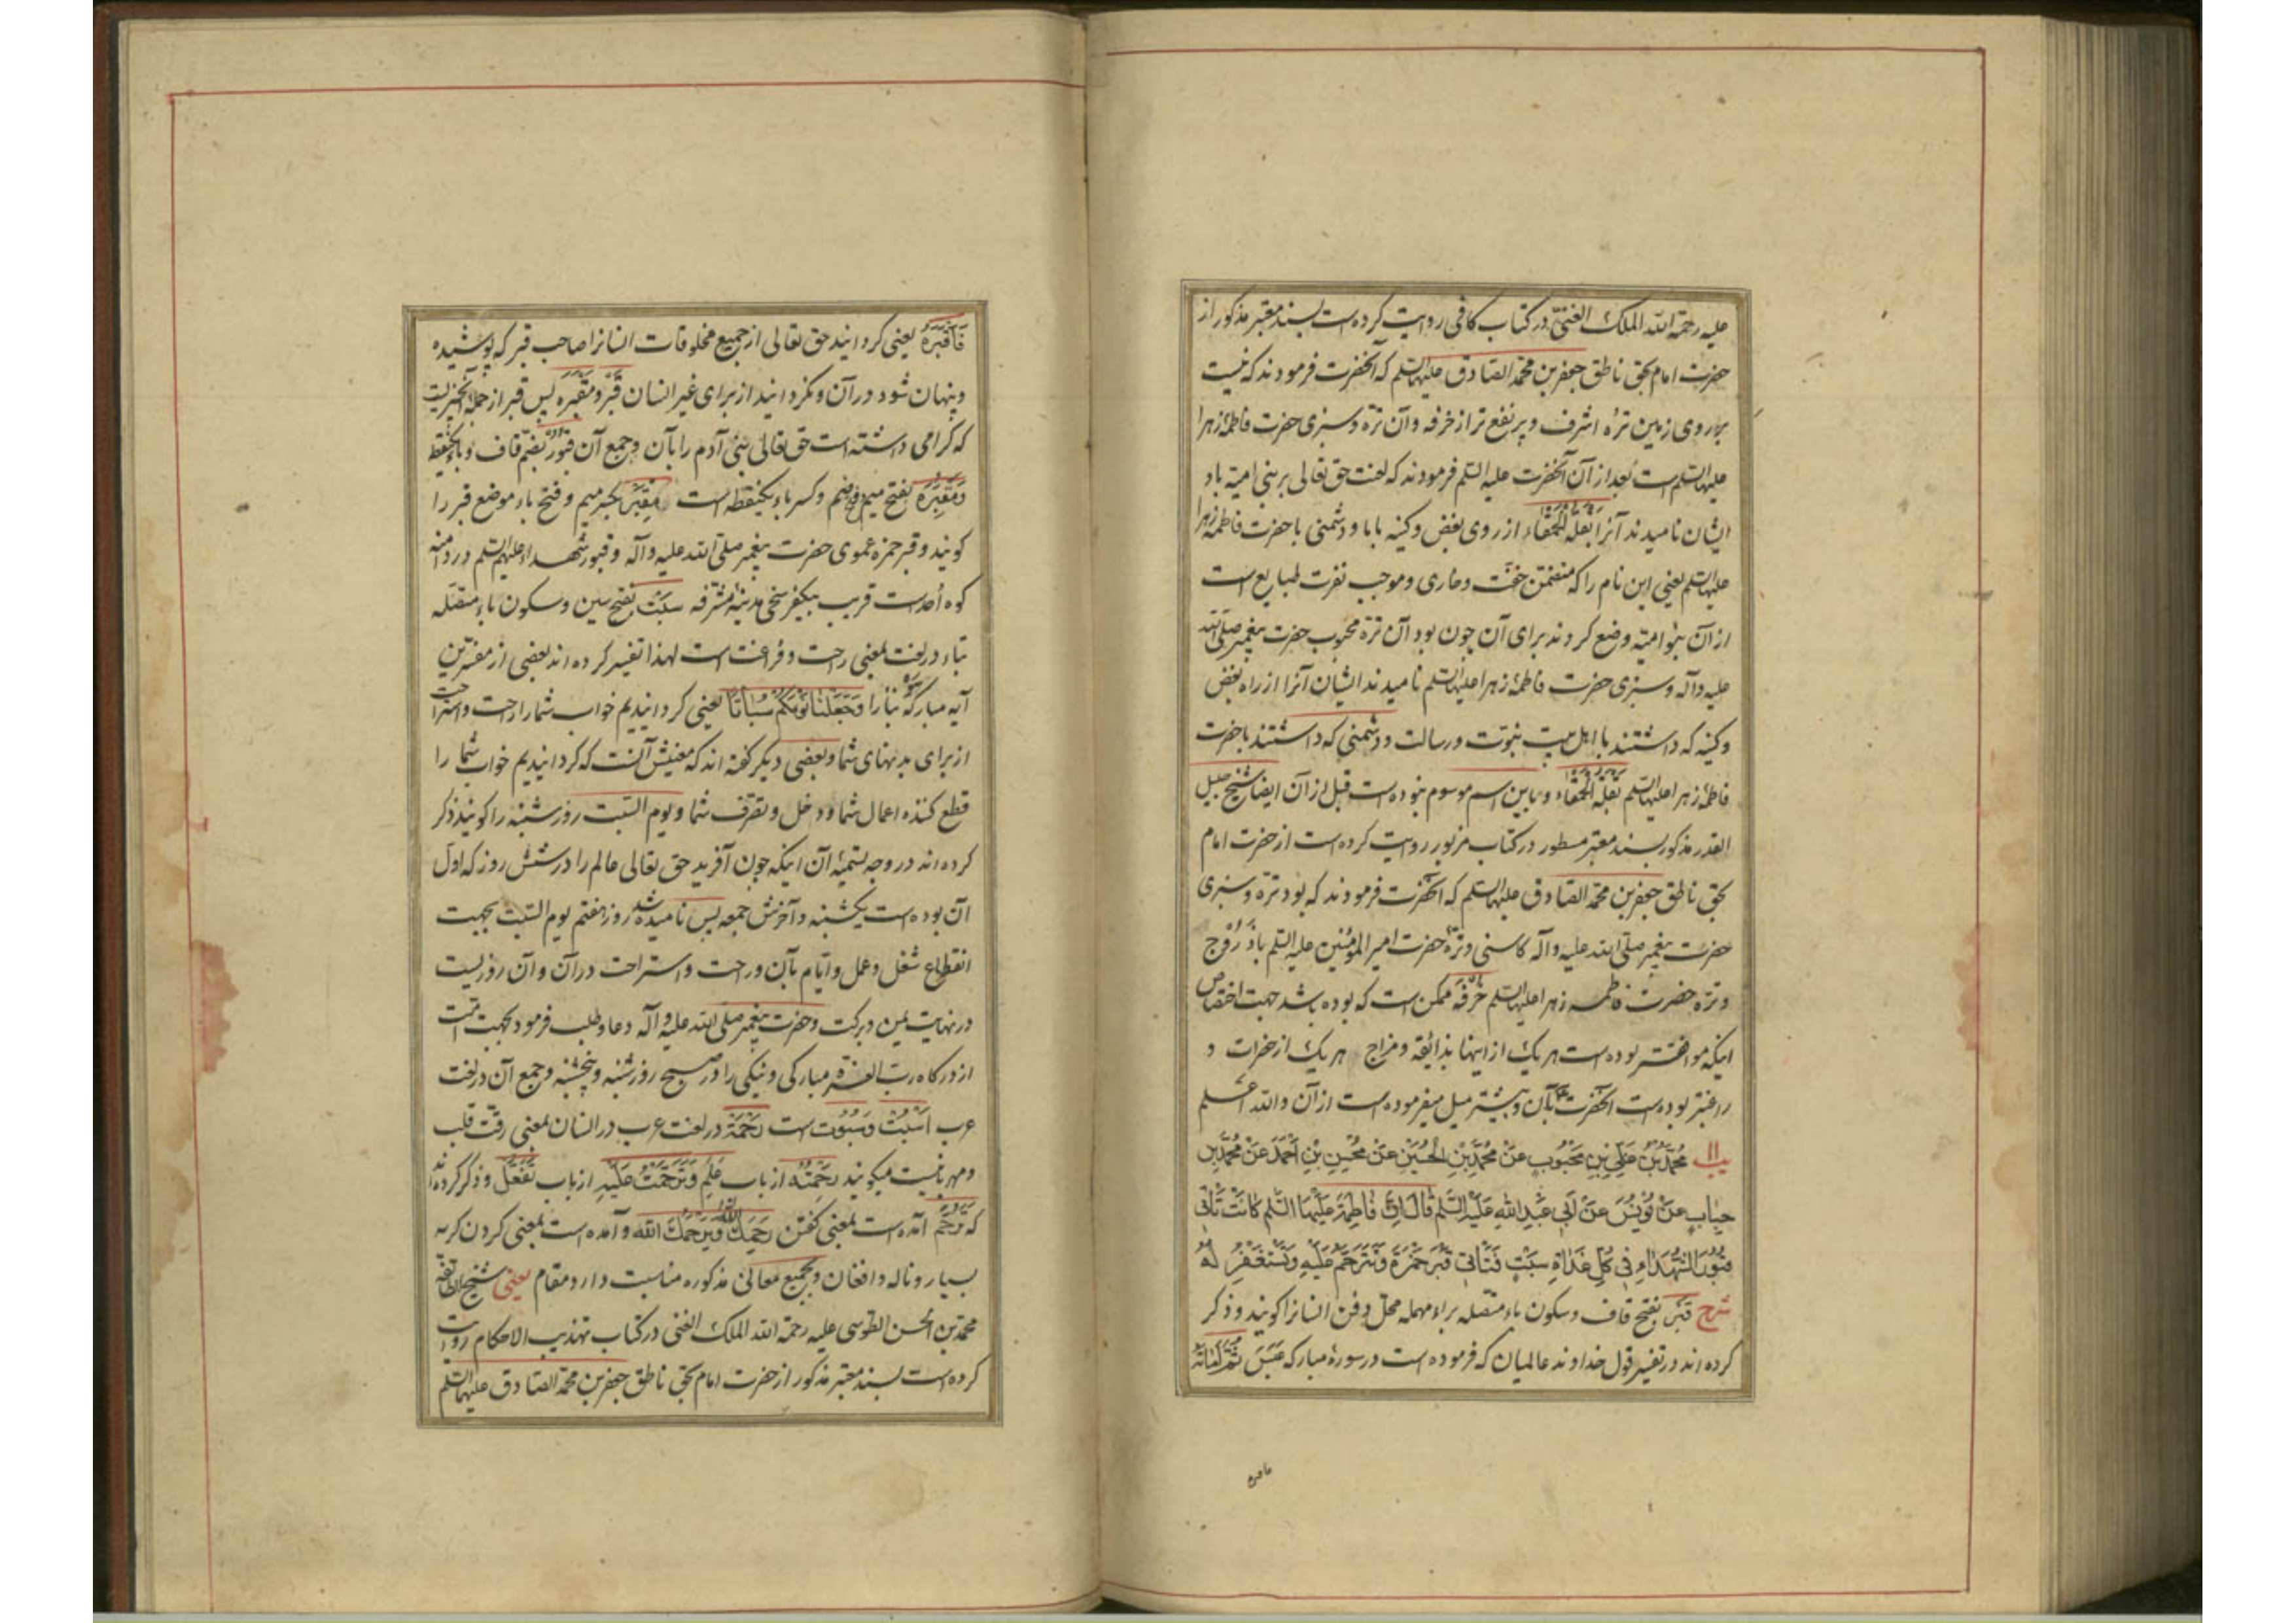 علیه رحمة الله الملک الغنیّ در کتاب کافی روایت کرده است بسند معتبر مذکور از
حضرت امام بحق ناطق جعفر بن محمّد الصّادق علیهما السّلم که آنحضرت فرمودند که نیست
بر روی زمین ترّهٔ اشرف و پر نفع تر از خرفه و آن ترّه و سبزی حضرت فاطمهٔ زهرا
علیها السّلم است بعد از آن آنحضرت علیه السّلم فرمودند که لعنت حق تعالی بر بنی امیّه باد
ایشان نامیدند آنرا بَقْلَةُ الْحَمْقَاء از روی بغض و کینه بابا و دشمنی با حضرت فاطمهٔ زهرا
علیها السّلم یعنی این نام را که متضمّن خفّت و خاری و موجب نفرت طبایع است
از آن بنو امیّه وضع کردند برای آن چون بود آن ترّه محبوب حضرت پیغمبر صلّی الله
علیه وآله و سبزی حضرت فاطمهٔ زهرا علیها السّلم نامیدند ایشان آنرا از راه بغض
و کینه که داشتند با اهل بیت نبوّت و رسالت و دشمنی که داشتند با حضرت
فاطمهٔ زهرا علیها السّلم بَقْلَةُ الْحَمْقَاء و باین اسم موسوم نبوده است قبل از آن ایضا شیخ جلیل
القدر مذکور بسند معتبر مسطور در کتاب مزبور روایت کرده است از حضرت امام
بحق ناطق جعفر بن محمّد الصّادق علیهما السّلم که آنحضرت فرمودند که بود ترّه و سبزی
حضرت پیغمبر صلّی الله علیه وآله کاسنی و ترّهٔ حضرت امیر المؤمنین علیه السّلم باذَرُوج
و ترّهٔ حضرت فاطمه زهرا علیها السّلم خرفه ممکن است که بوده باشد جهت اختصاص
اینکه موافقتر بوده است هر یک از اینها بذایقه و مزاج هر یک از حضرات و
راغبتر بوده است آنحضرت بآن و بیشتر میل میفرموده است از آن والله اعلم
یب مُحَمَّدُ بْنُ عَلِيِّ بْنِ مَحْبُوبٍ عَنْ مُحَمَّدِ بْنِ الْحُسَيْنِ عَنْ مُحْسِنِ بْنِ أَحْمَدَ عَنْ مُحَمَّدِ بْنِ
حبابٍ عَنْ يُونُسَ عَنْ أَبِي عَبْدِ اللهِ عَلَيْهِ السَّلَم قَالَ إِنَّ فَاطِمَةَ عَلَيْهَا السَّلَم كَانَتْ تَأْتِي
قُبُورَ الشُّهَدَاءِ فِي كُلِّ غَدَاةِ سَبْتٍ فَتَأْتِي قَبْرَ حَمْزَةَ وَتَتَرَحَّمُ عَلَيْهِ وَتَسْتَغْفِرُ لَهُ
شرح قَبْر بفتح قاف و سکون باء متّصله براء مهمله محلّ دفن انسانرا گویند و ذکر
کرده اند در تفسیر قول خداوند عالمیان که فرموده است در سورهٔ مبارکه عَبَسَ ثُمَّ أَمَاتَهُ
فاقبره
فَأَقْبَرَهُ یعنی گردانید حق تعالی از جمیع مخلوقات انسانرا صاحب قبر که پوشیده
و پنهان شود در آن و نگردانید از برای غیر انسان قَبْر و مَقْبَره پس قبر از جمله آنچیزیست
که گرامی داشته است حق تعالی بنی آدم را بآن و جمع آن قُبُور بضمّ قاف و باء یکنقطه
وَمَقْبَرَه بفتح میم و ضم و کسر باء یکنقطه است مِقْبَر بکسر میم و فتح باء موضع قبر را
گویند و قبر حمزه عموی حضرت پیغمبر صلّی الله علیه وآله و قبور شهداء علیهم السّلم در دامنه
کوه اُحد است قریب بیکفرسخی مدینهٔ مشرّفه سَبْت بفتح سین و سکون باء متّصله
بتاء در لغت بمعنی راحت و فراغت است لهذا تفسیر کرده اند بعضی از مفسّرین
آیه مبارکهٔ سوره نبأ را وَجَعَلْنَا نَوْمَكُمْ سُبَاتًا یعنی گردانیدیم خواب شما را راحت و استراحت
از برای بدنهای شما و بعضی دیگر گفته اند که معنیش آنست که گردانیدیم خواب شما را
قطع کننده اعمال شما و دخل و تصرّف شما و یوم السّبت روز شنبه را گویند ذکر
کرده اند در وجه تسمیهٔ آن اینکه چون آفرید حق تعالی عالم را در شش روز که اوّل
آن بوده است یکشنبه و آخرش جمعه پس نامیده شد روز هفتم یوم السّبت بجهت
انقطاع شغل و عمل و ایّام بآن و راحت و استراحت در آن و آن روزیست
در نهایت یمن و برکت و حضرت پیغمبر صلّی الله علیه وآله دعا و طلب فرمود بجهت امّت
از درگاه ربّ العزّة مبارکی و نیکی را در صبح روز شنبه و پنجشنبه و جمع آن در لغت
عرب اَسْبُت وَسُبُوت است رَحْمَة در لغت عرب در انسان بمعنی رقّت قلب
و مهربانیست میگویند رَحِمْتُهُ از باب عَلِمَ وَتَرَحَّمْتُ عَلَيْهِ از باب تَفَعُّل و ذکر کرده اند
که تَرَحُّم آمده است بمعنی گفتن رَحِمَكَ اللّٰهُ وَيَرْحَمُكَ اللّٰهُ و آمده است بمعنی کردن گریه
بسیار و ناله و افغان و جمیع معانی مذکوره مناسبت دارد مقام یعنی شیخ الطایفه
محمّد بن الحسن الطّوسی علیه رحمة الله الملک الغنی در کتاب تهذیب الاحکام روایت
کرده است بسند معتبر مذکور از حضرت امام بحق ناطق جعفر بن محمّد الصّادق علیهما السّلم